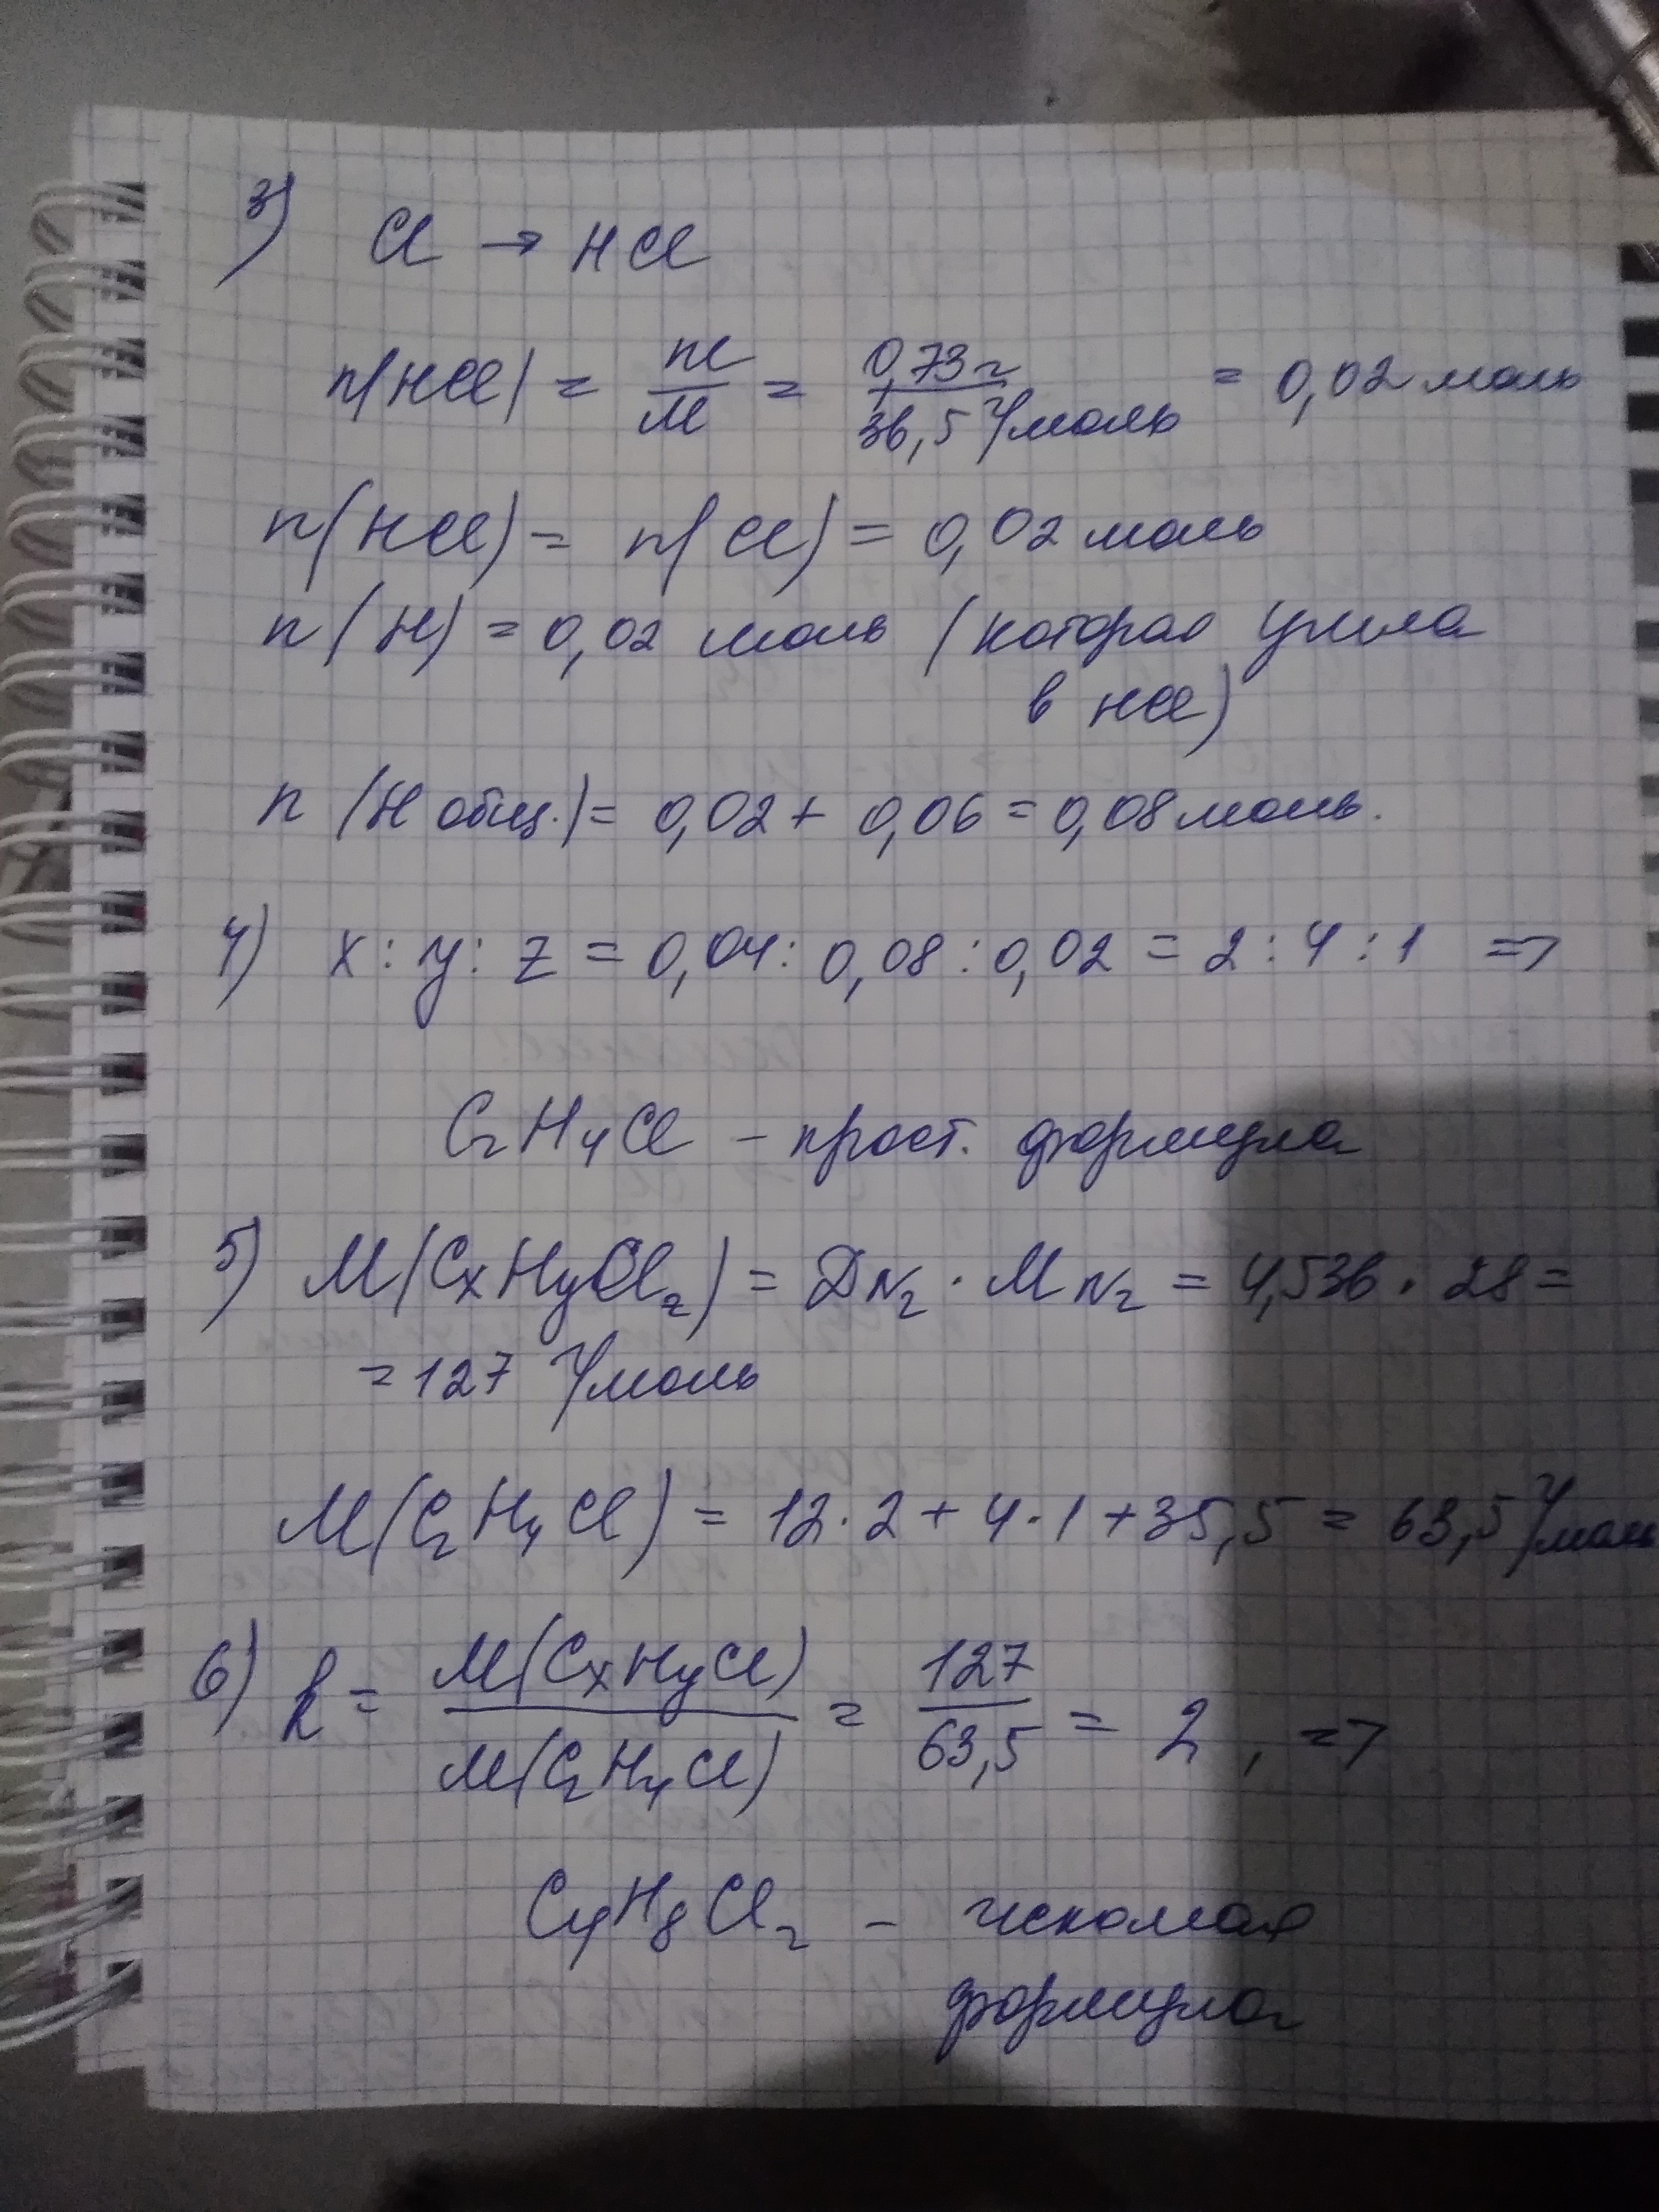 3) Cl → HCl
n(HCl) = m/M = 0,73 г/36,5 г/моль = 0,02 моль
n(HCl) = n(Cl) = 0,02 моль
n(H) = 0,02 моль (которая ушла
в HCl)
n (H общ.) = 0,02 + 0,06 = 0,08 моль.
4) x : y : z = 0,04 : 0,08 : 0,02 = 2 : 4 : 1 =>
C₂H₄Cl – прост. формула
5) M(CxHyClz) = DN₂ · MN₂ = 4,536 · 28 =
= 127 г/моль
M(C₂H₄Cl) = 12 · 2 + 4 · 1 + 35,5 = 63,5 г/моль
6) k = M(CxHyCl)/M(C₂H₄Cl) = 127/63,5 = 2, =>
C₄H₈Cl₂ – искомая
формула